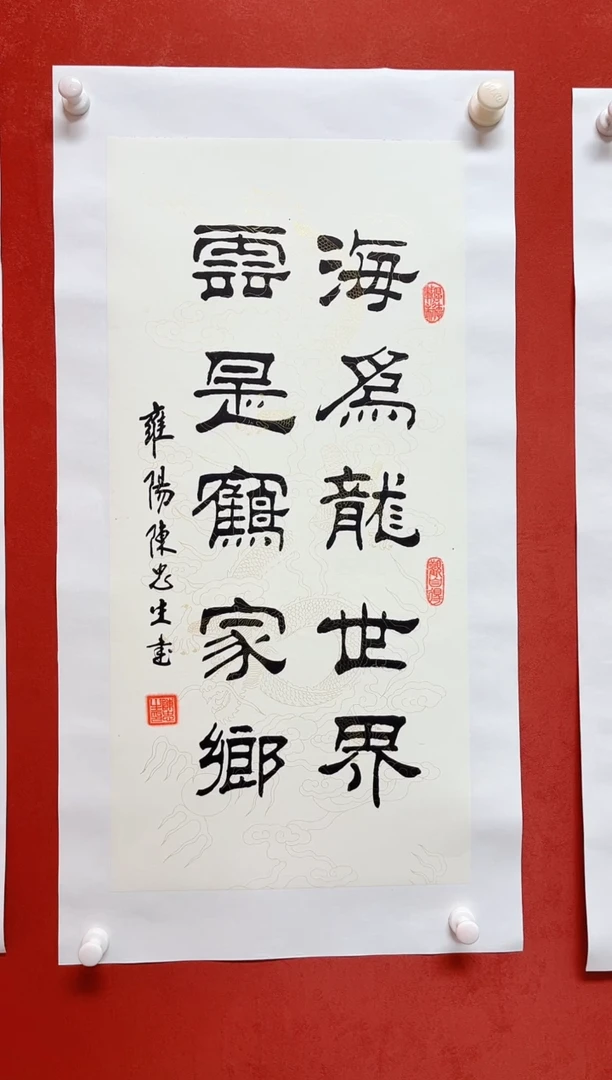 海爲龍世界
雲是鶴家鄉
雍陽陳忠生書